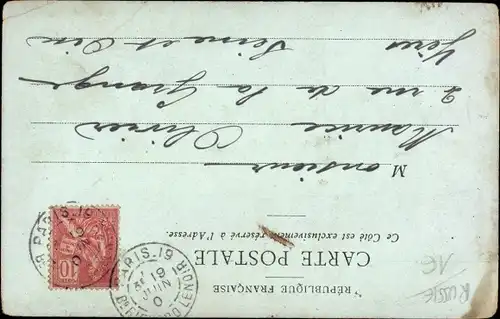 RÉPUBLIQUE FRANÇAISE
CARTE POSTALE
Ce Côté est exclusivement réservé à l'Adresse.
Monsieur
Maurice Olivier
2 rue de la Grange
Yères Seine et Oise
PARIS_19
19
JUIN
0
10
RUSSIE